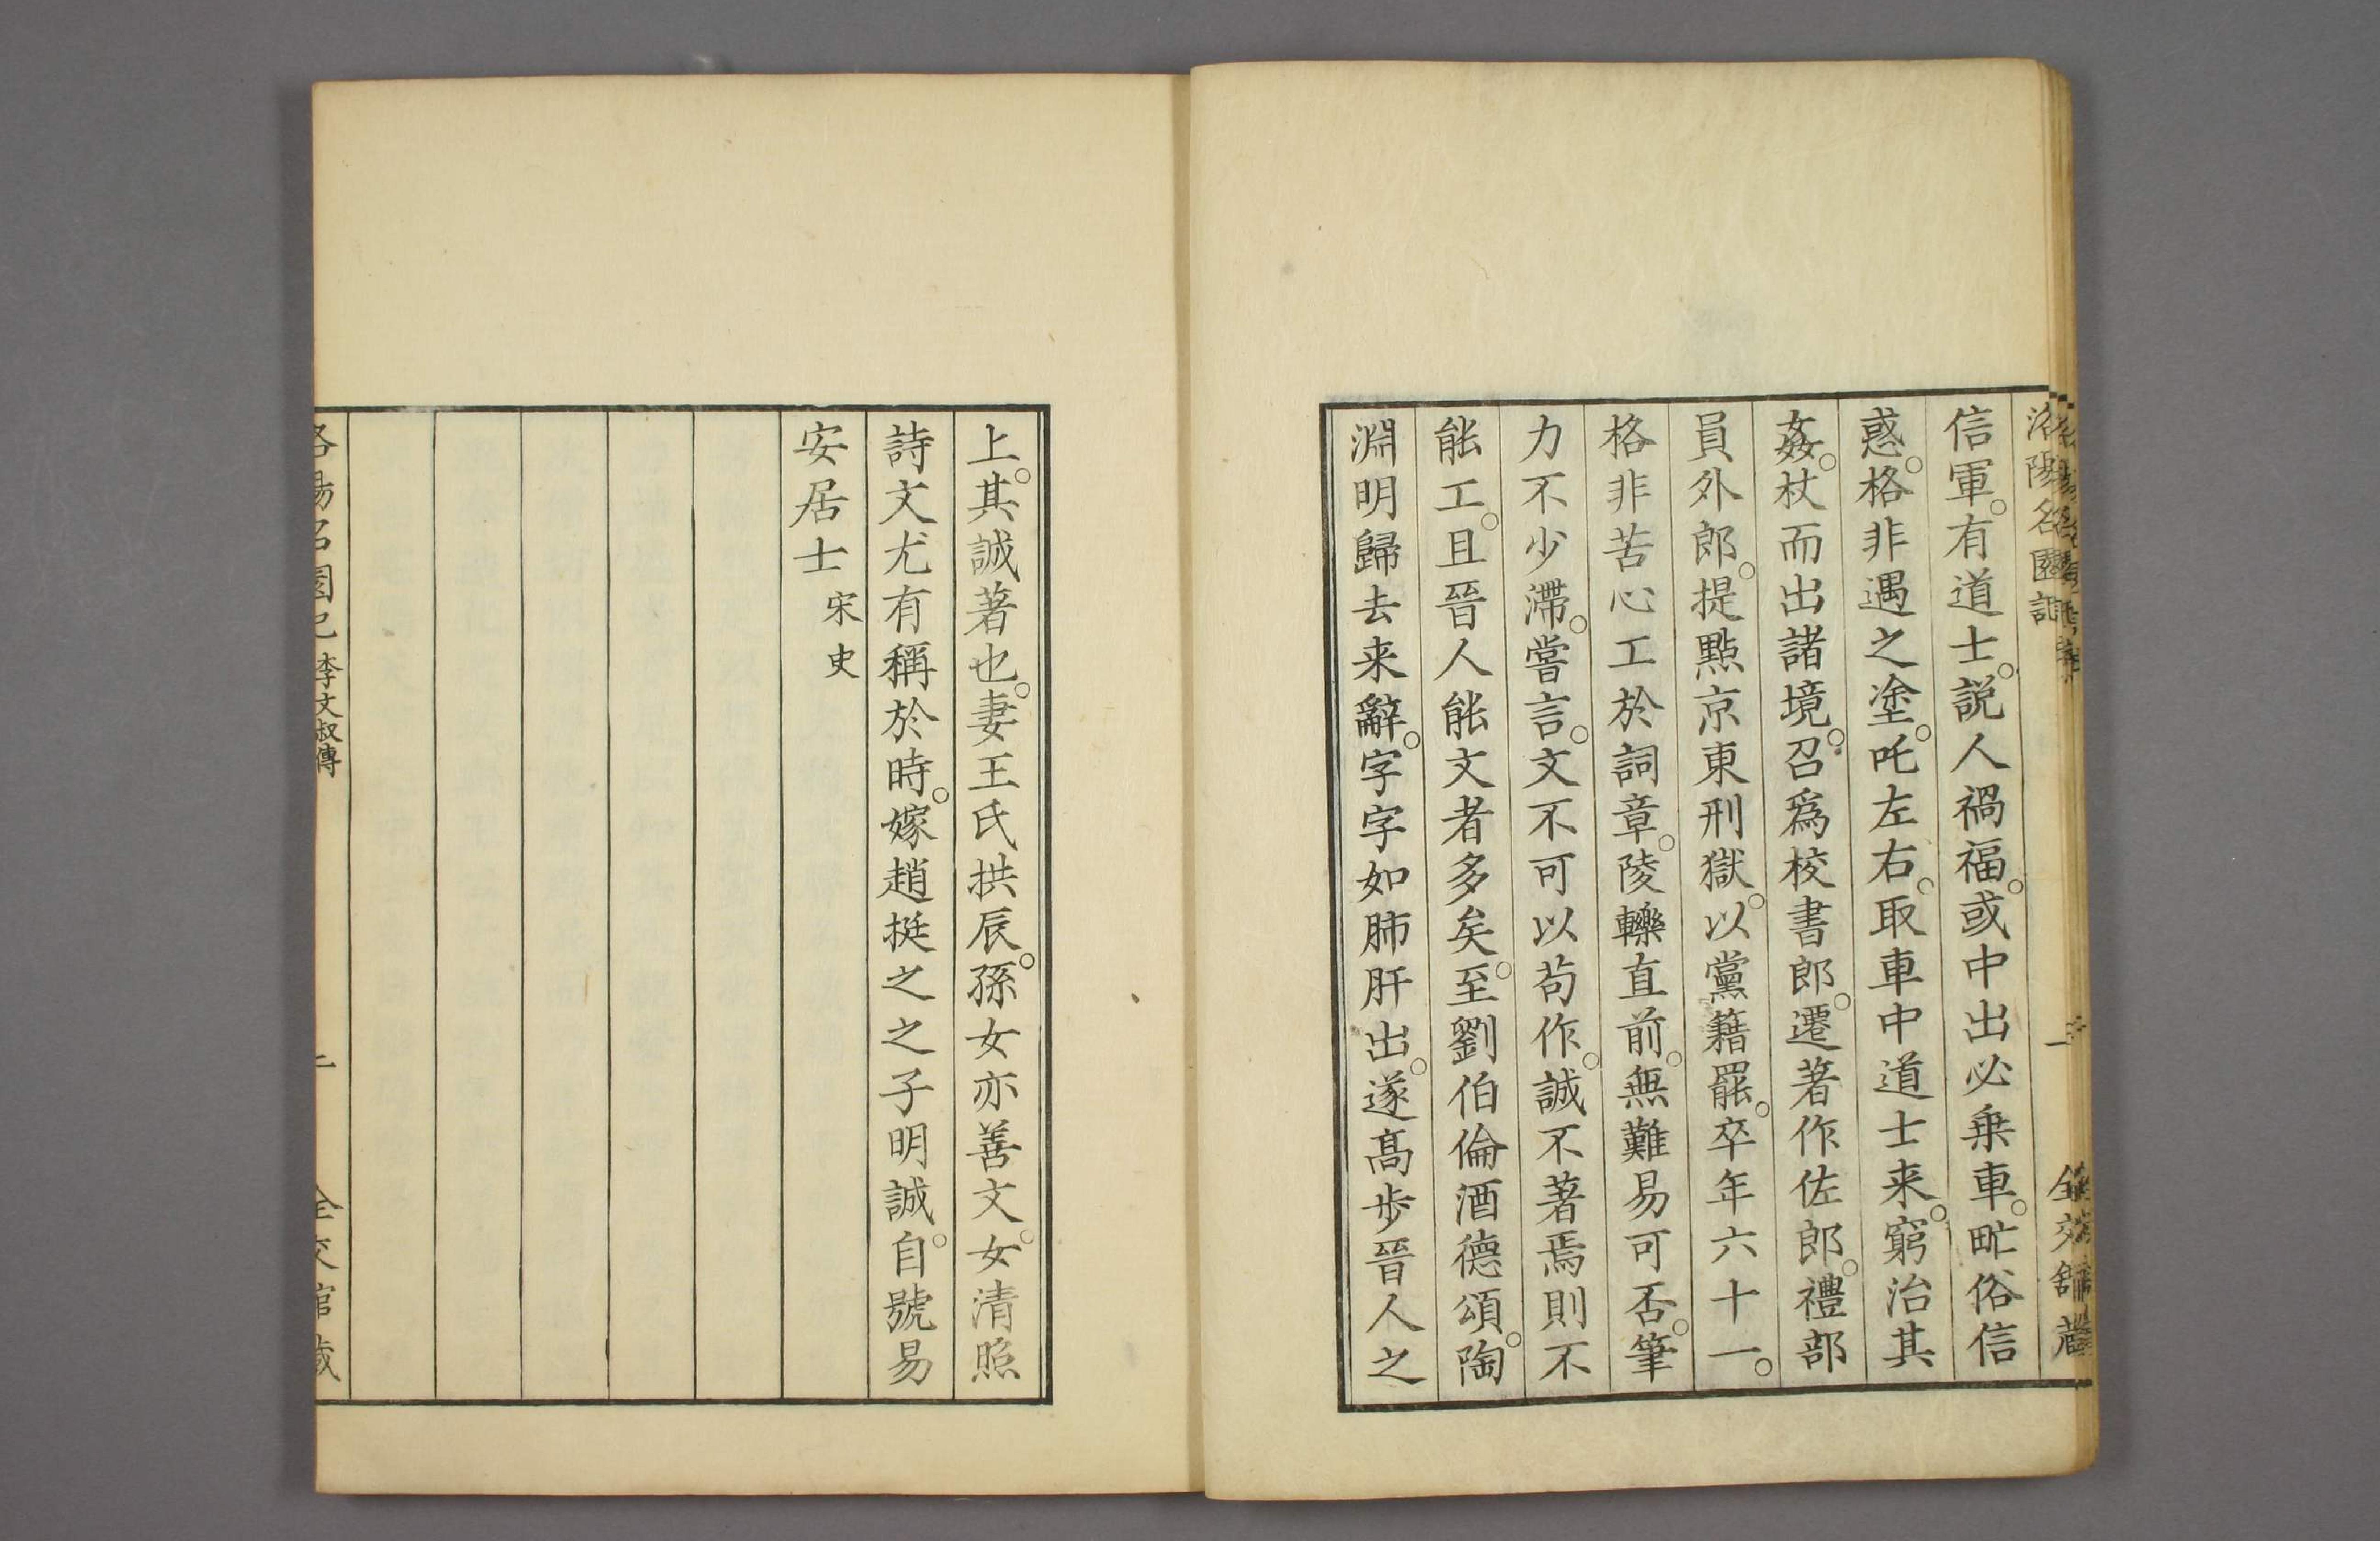 洛陽名園記
一
全交館藏
信軍。有道士。説人禍福。或中出必乗車。甿俗信
惑。格非遇之塗。叱左右。取車中道士来。窮治其
姦。杖而出諸境。召爲校書郎。遷著作佐郎。禮部
員外郎。提點京東刑獄。以黨籍罷。卒年六十一。
格非苦心工於詞章。陵轢直前。無難易可否。筆
力不少滯。嘗言。文不可以茍作。誠不著焉則不
能工。且晉人能文者多矣。至劉伯倫酒德頌。陶
淵明歸去来辭。字字如肺肝出。遂高歩晉人之
上。其誠著也。妻王氏拱辰。孫女亦善文。女清照
詩文尤有稱於時。嫁趙挺之之子明誠。自號易
安居士 宋史
洛陽名園記 李文叔傳
全交館藏